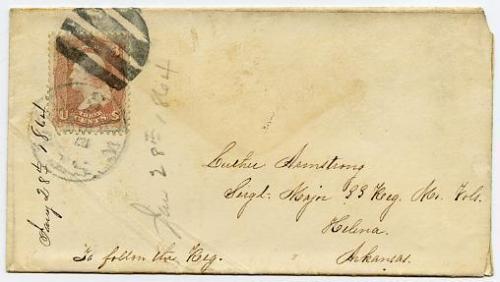 Jany 28th 1864
Jan 28th 1864
U S
CENTS
Luther Armstrong
Sergt. Major 33 Reg. Mo. Vols.
Helena
Arkansas.
To follow the Reg.